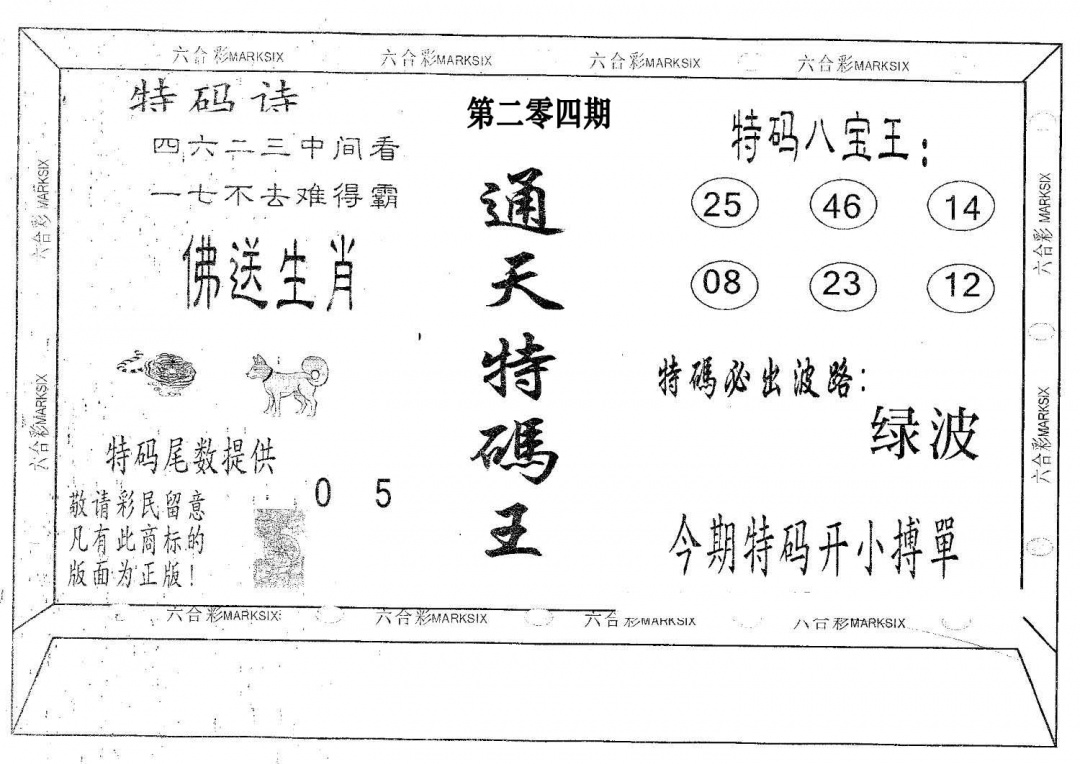 六合彩MARKSIX 六合彩MARKSIX 六合彩MARKSIX 六合彩MARKSIX
特码诗
四六二三中间看
一七不去难得霸
佛送生肖
特码尾数提供
0 5
敬请彩民留意
凡有此商标的
版面为正版!
第二零四期
通天特碼王
特码八宝王:
25 46 14
08 23 12
特碼必出波路:
绿波
今期特码开小搏單
六合彩MARKSIX
六合彩MARKSIX
六合彩MARKSIX
六合彩MARKSIX
六合彩MARKSIX 六合彩MARKSIX 六合彩MARKSIX 六合彩MARKSIX